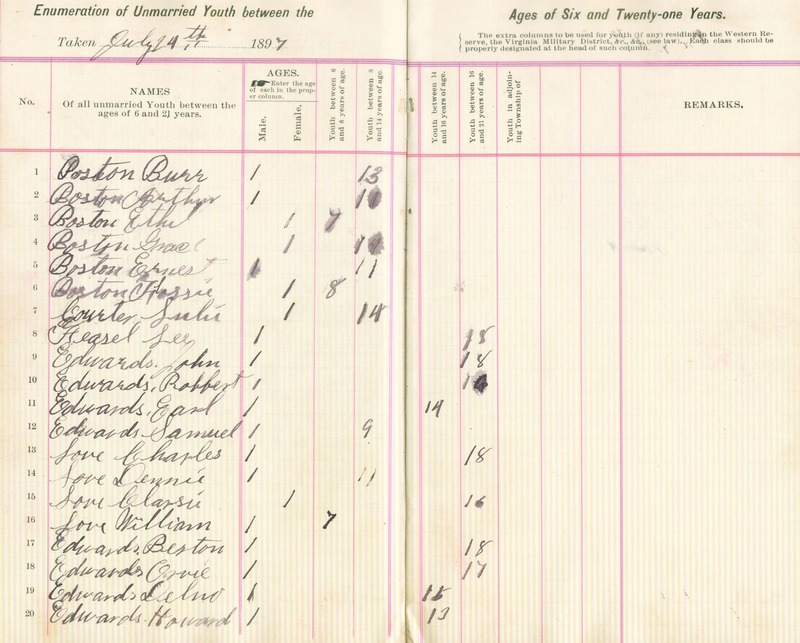 Enumeration of Unmarried Youth between the Ages of Six and Twenty-one Years.
Taken July 1897
The extra columns to be used for youth (if any) residing in the Western Re-
serve, the Virginia Military District, &c., &c., (see law). Each class should be
properly designated at the head of such column.
No.
NAMES
Of all unmarried Youth between the
ages of 6 and 21 years.
AGES.
Enter the age
of each in the prop-
er column.
Male.
Female.
Youth between 6
and 8 years of age.
Youth between 8
and 14 years of age.
Youth between 14
and 16 years of age.
Youth between 16
and 21 years of age.
Youth in adjoin-
ing Township of
REMARKS.
1 Boston Burr 1 13
2 Boston Arthur 1
3 Boston 1 7
4 Boston 1
5 Boston Ernest 1 11
6 Boston 1 8
7 Courter 1 14
8 Heasel Lee 1 18
9 Edwards. John 1 18
10 Edwards, Robbert 1
11 Edwards, Earl 1 14
12 Edwards Samuel 1 9
13 Love Charles 1 18
14 Love Dennie 1 11
15 Love 1 16
16 Love William 1 7
17 Edwards, Beston 1 18
18 Edwards Orvie 1 17
19 Edwards 1 15
20 Edwards. Howard 1 13